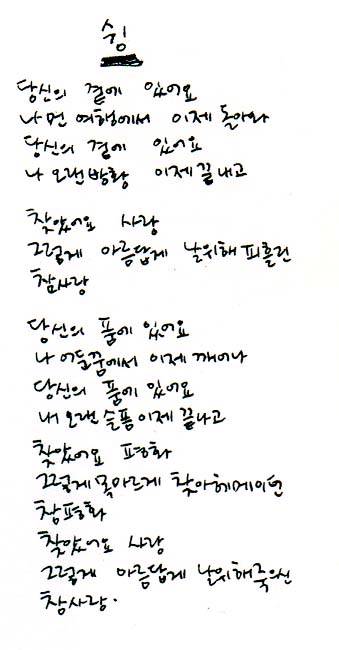 쉼
당신의 곁에 있어요
나 먼 여행에서 이제 돌아와
당신의 곁에 있어요
나 오랜방황 이제 끝내고
찾았어요 사랑
그렇게 아름답게 날위해 피흘린
참사랑
당신의 품에 있어요
나 어둔꿈에서 이제 깨어나
당신의 품에 있어요
내 오랜 슬픔 이제 끝나고
찾았어요 평화
그렇게 목마르게 찾아헤메이던
참평화
찾았어요 사랑
그렇게 아름답게 날위해 죽으신
참사랑.